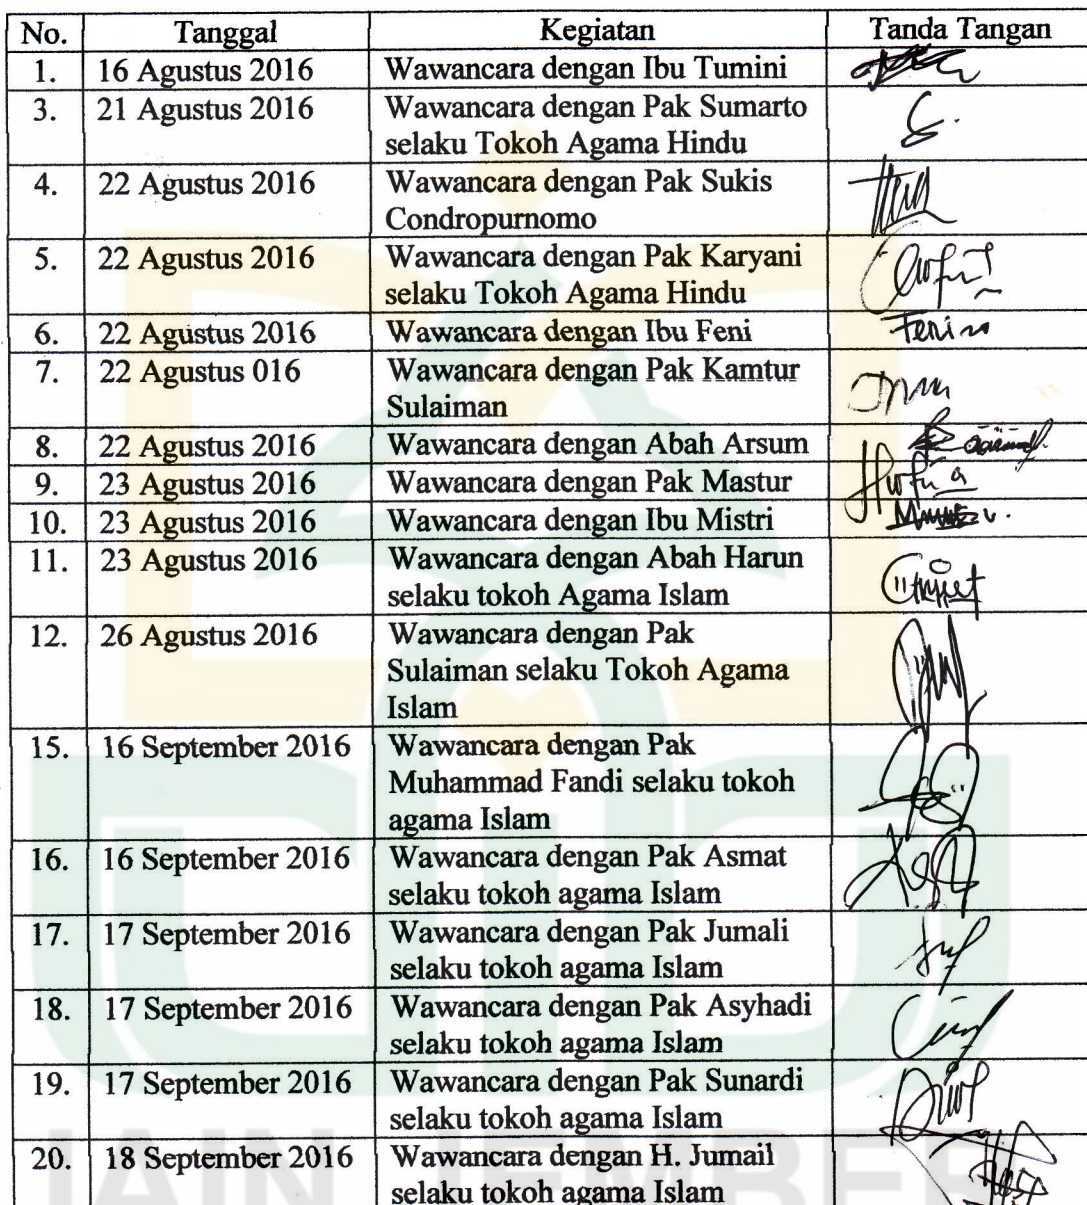 No. Tanggal Kegiatan Tanda Tangan
1. 16 Agustus 2016 Wawancara dengan Ibu Tumini
3. 21 Agustus 2016 Wawancara dengan Pak Sumarto
selaku Tokoh Agama Hindu
4. 22 Agustus 2016 Wawancara dengan Pak Sukis
Condropurnomo
5. 22 Agustus 2016 Wawancara dengan Pak Karyani
selaku Tokoh Agama Hindu
6. 22 Agustus 2016 Wawancara dengan Ibu Feni
7. 22 Agustus 016 Wawancara dengan Pak Kamtur
Sulaiman
8. 22 Agustus 2016 Wawancara dengan Abah Arsum
9. 23 Agustus 2016 Wawancara dengan Pak Mastur
10. 23 Agustus 2016 Wawancara dengan Ibu Mistri
11. 23 Agustus 2016 Wawancara dengan Abah Harun
selaku tokoh Agama Islam
12. 26 Agustus 2016 Wawancara dengan Pak
Sulaiman selaku Tokoh Agama
Islam
15. 16 September 2016 Wawancara dengan Pak
Muhammad Fandi selaku tokoh
agama Islam
16. 16 September 2016 Wawancara dengan Pak Asmat
selaku tokoh agama Islam
17. 17 September 2016 Wawancara dengan Pak Jumali
selaku tokoh agama Islam
18. 17 September 2016 Wawancara dengan Pak Asyhadi
selaku tokoh agama Islam
19. 17 September 2016 Wawancara dengan Pak Sunardi
selaku tokoh agama Islam
20. 18 September 2016 Wawancara dengan H. Jumail
selaku tokoh agama Islam
IAIN JEMBER